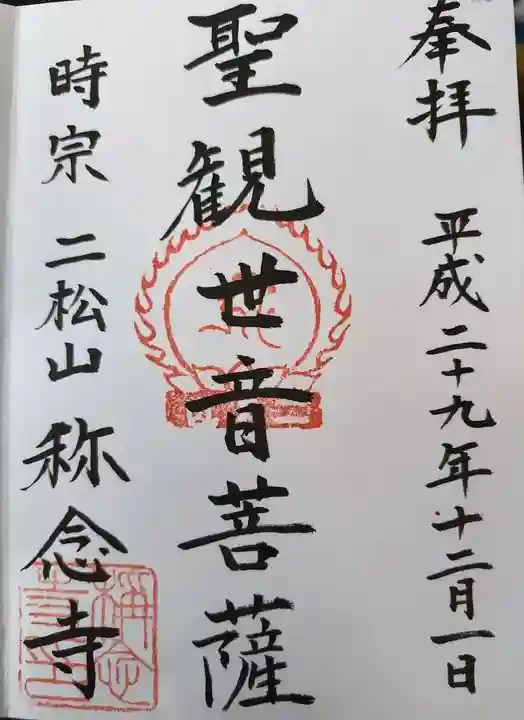 奉拝 平成二十九年十二月一日
聖観世音菩薩
時宗 二松山 称念寺